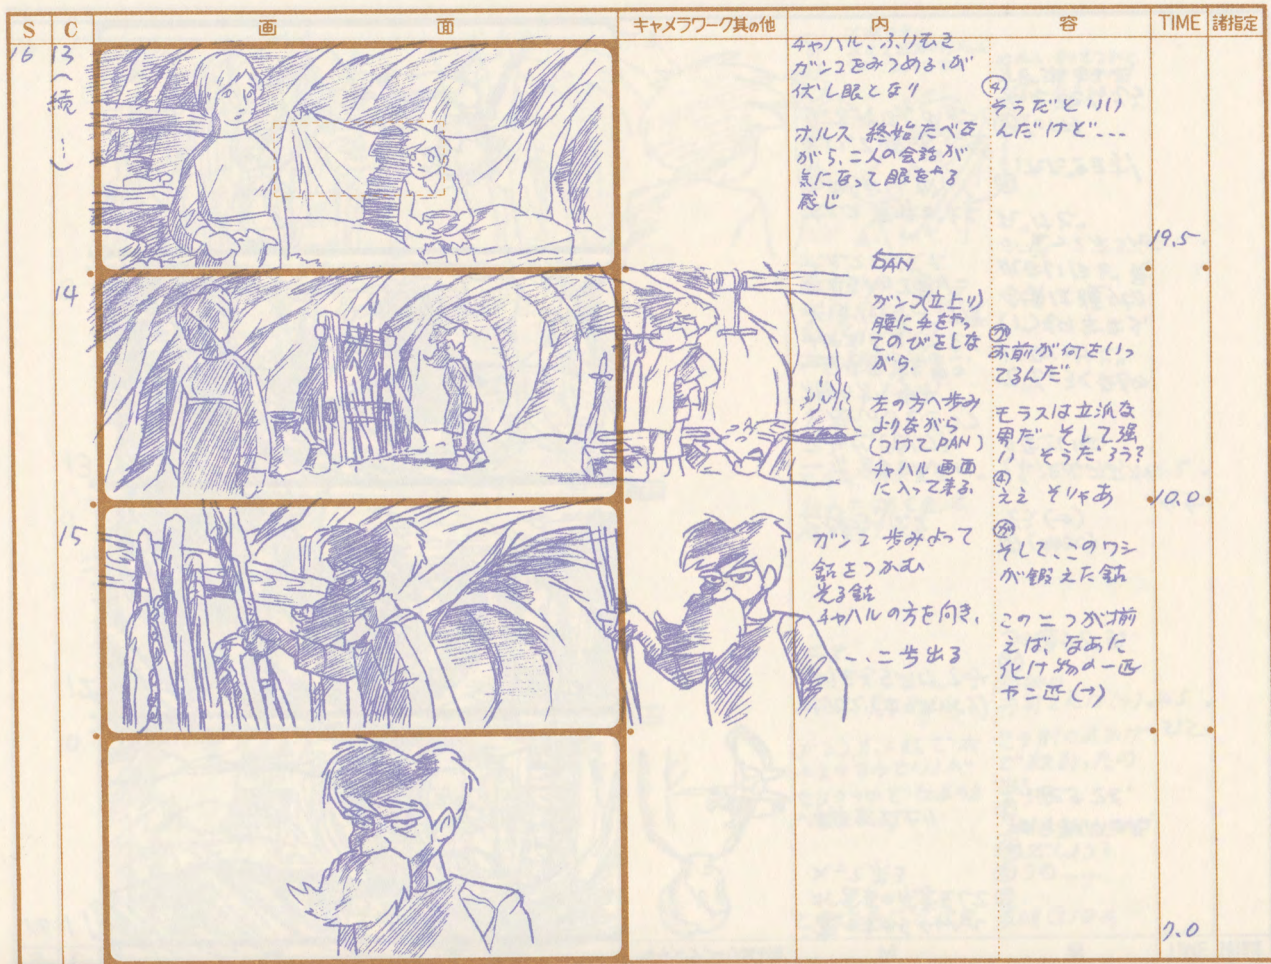 S C 画面 キャメラワーク其の他 内容 TIME 諸指定
16 13(続…)
チャハル、ふりむき
ガンコをみつめるが
伏し眼となり
ホルス 終始たべな
がら、二人の会話が
気になって眼をやる
感じ
㋠
そうだといい
んだけど…
19.5
14
PAN
ガンコ(立上り)
腰に手をやっ
てのびをしな
がら、
左の方へ歩み
よりながら
(つけてPAN)
チャハル画面
に入って来る。
お前が何をいっ
てるんだ
モラスは立派な
男だ そして強
い そうだろう?
ええ そりゃあ
10.0
15
ガンコ 歩みよって
銛をつかむ
光る銛
チャハルの方を向き、
一、二歩出る
そして、このワシ
が鍛えた銛
この二つが揃
えば、なあに
化け物の一匹
や二匹(→)
7.0